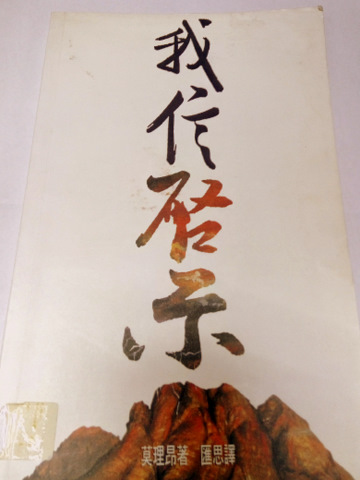 我信启示
莫理昂著 匯思譯